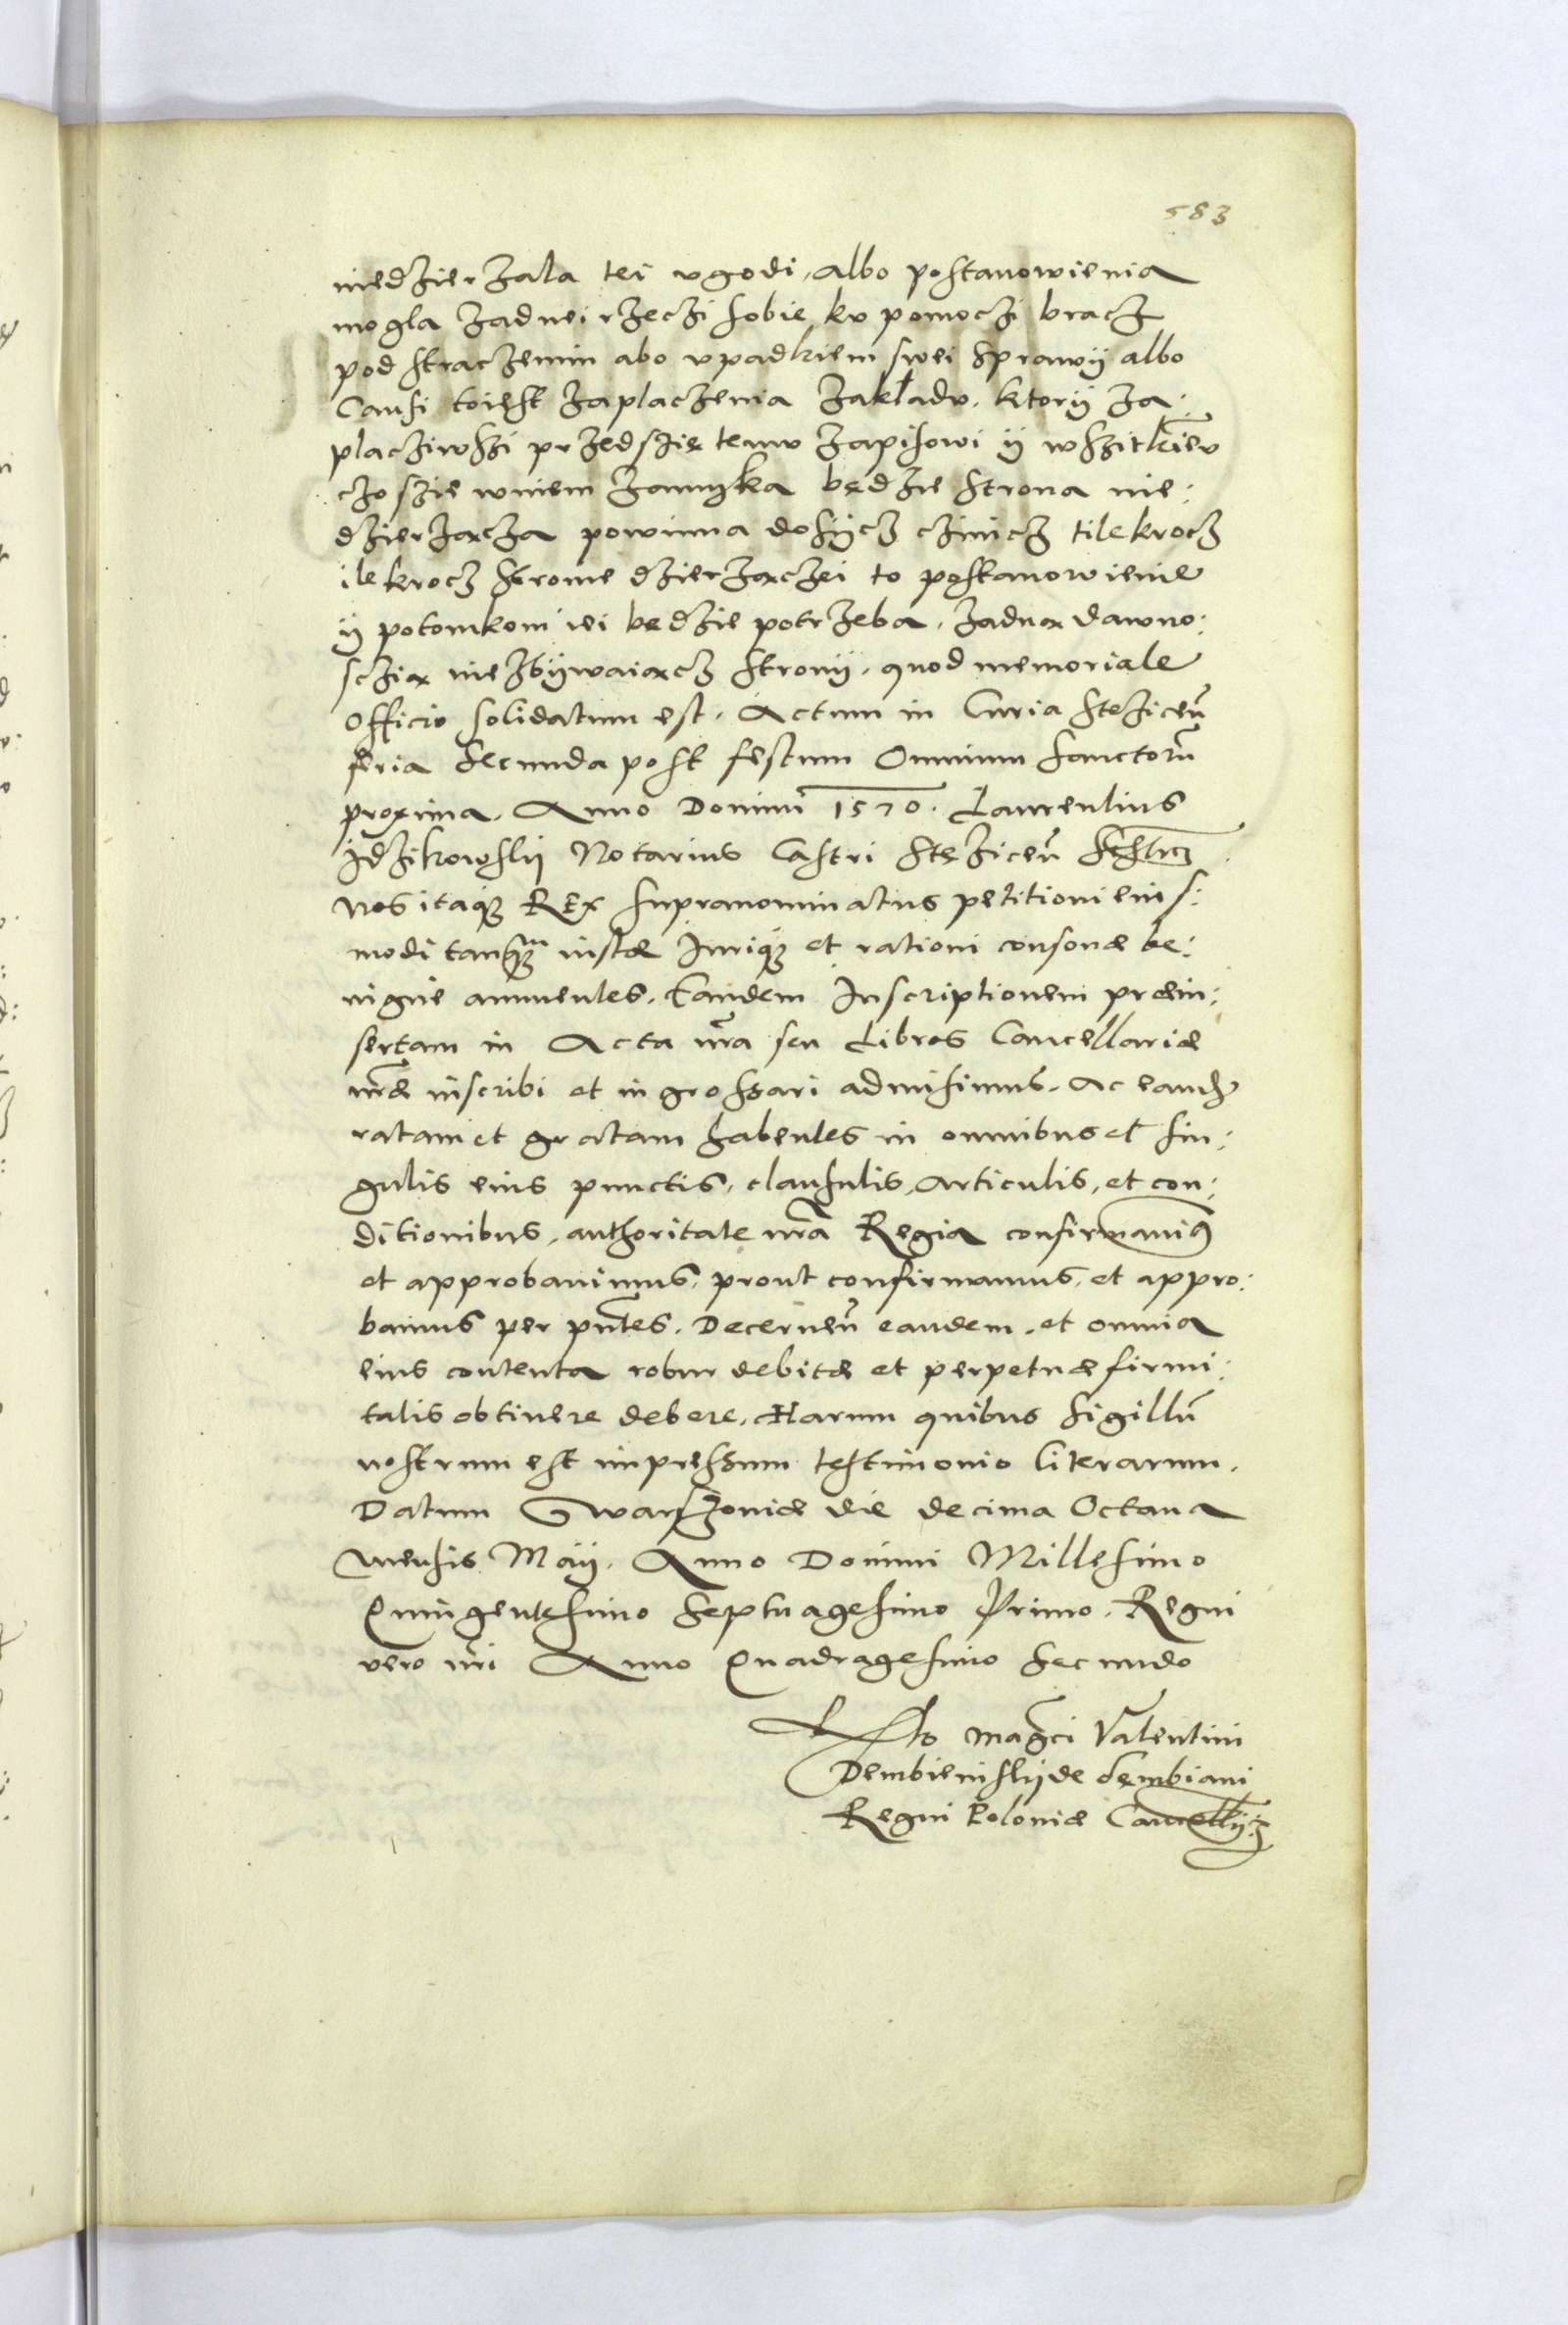 583
niedzierzala tei vgodi, albo postanowienia
mogla zadnei rzeczi sobie ku pomoczi bracz
pod straczenim abo vpadkiem swei sprawÿ albo
Causi toiest zaplaczenia zakładu. ktorÿ za:
placziwszi przedszię temu zapisowi ÿ wszitkiĕu
czo szie wniem zamyka będzie strona nie:
dzierząca powinna dosÿcz czinicz tilekrocz
ilekrocz stronie dzierzączei to postanowienie
ÿ potomkom iei będzie potrzeba, zadną dawno:
scią niezbÿwaiącz stronÿ. quod memoriale
Officio solidatum est. Actum in Curia Stezicen̄
feria secunda post festum Omnium Sanctorū
proxima. Anno Domini 1570. Laurentius
Idzikowskÿ Notarius Castri Stęzicen̄ sśtrz
Nos itaq́ꝫ REX supranominatus petitioni eius:
modi tanq̃ꝫ iustæ Iuriq́ꝫ et rationi consonæ be:
nigne annuentes. Eandem Inscriptionem præin:
sertam in Acta nr̃a seu Libros Cancellariæ
nr̃æ inscribi et ingrossari admisimus. Ac eandẽ
ratam et gratam habentes in omnibus et sin:
gulis eius punctis, clausulis, articulis, et con:
ditionibus, authoritate nr̃a Regia confirmauimꝰ
et approbauimus, prout confirmamus, et appro:
bamus per pñtes. Decernen̄ eandem, et omnia
eius contenta robur debitæ et perpetuæ firmi:
tatis obtinere debere. Harum quibus sigillū
nostrum est impressum testimonio literarum.
Datum Warszouiæ die decima Octaua
mensis Maÿ. Anno Domini Millesimo
Quingentesimo Septuagesimo Primo. Regni
vero nr̃i Anno Quadragesimo secundo
Rᵗᵒ mag̃ci Valentini
Dembienskÿ de dembiani
Regni Poloniæ Cancellÿ: